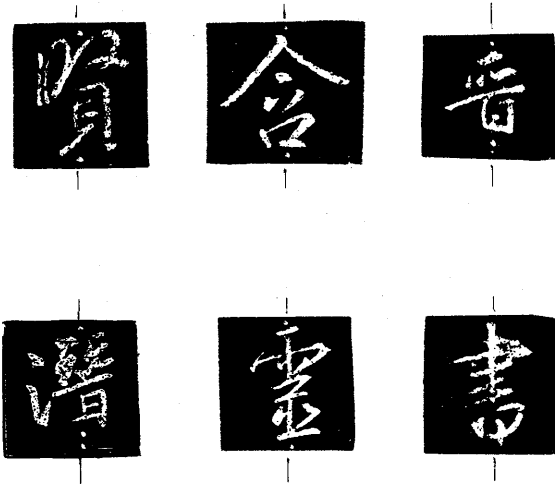 賢 含 晋
潛 靈 書